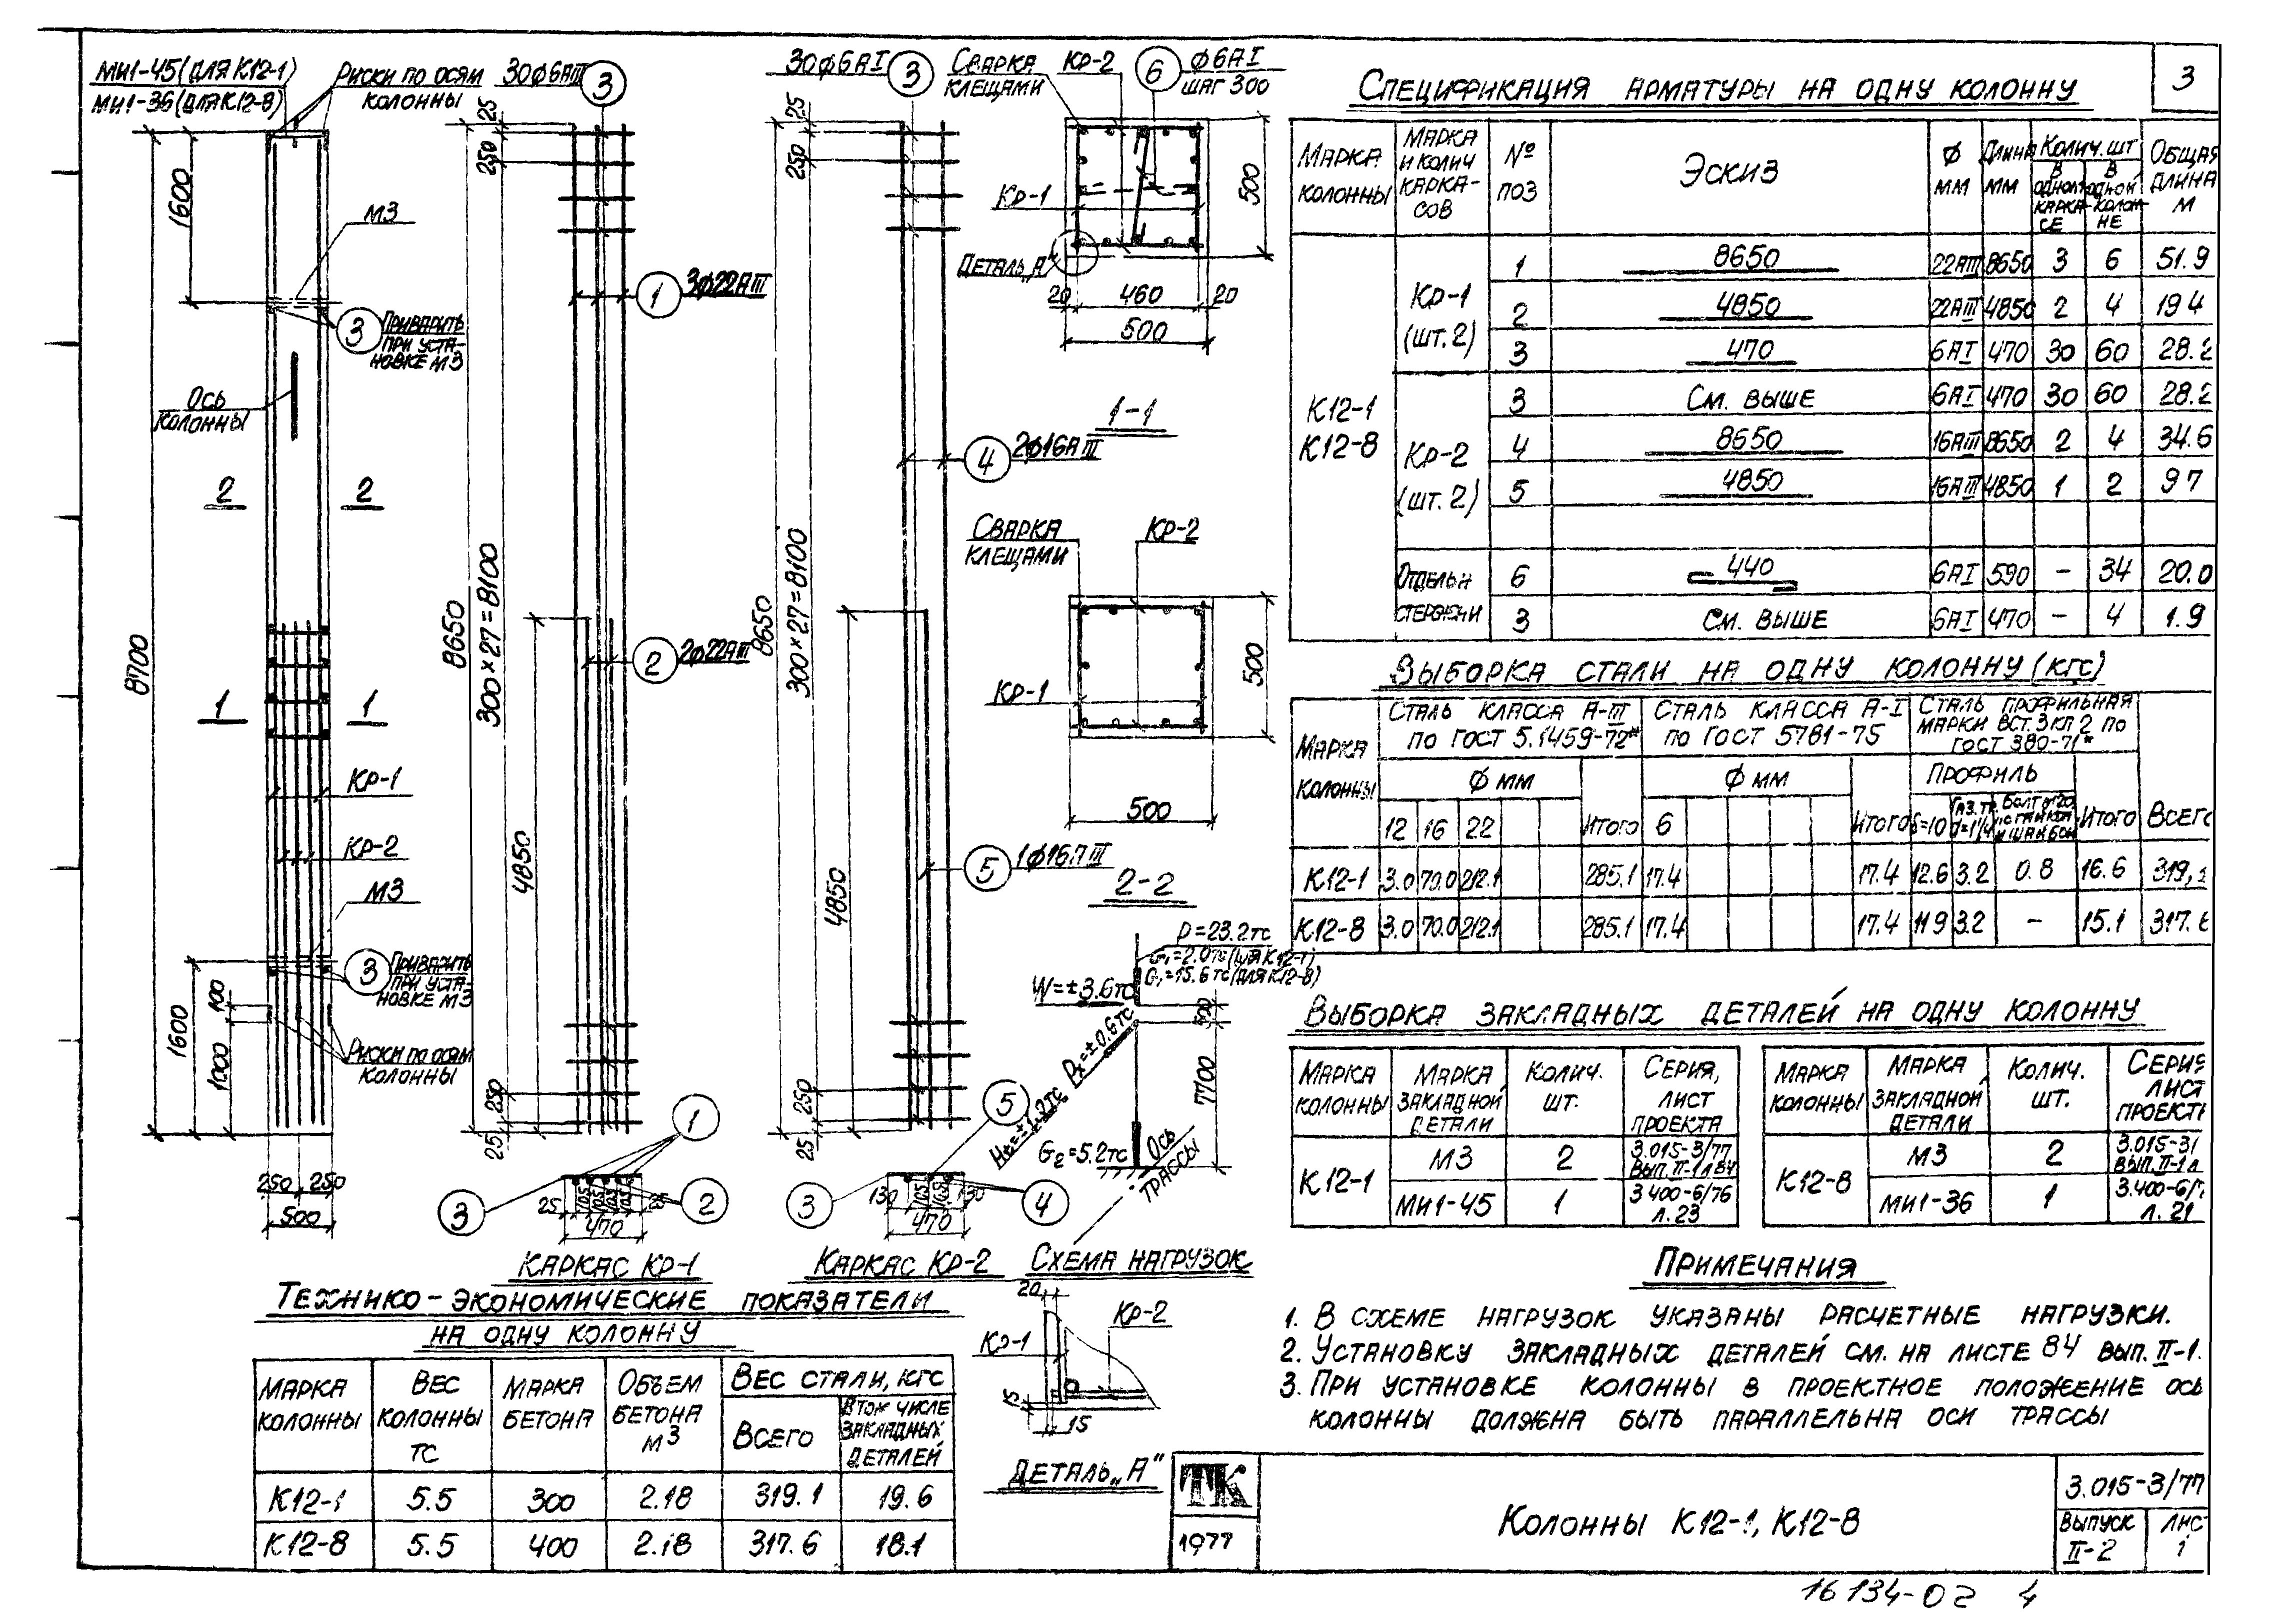 3
МИ1-45 (ДЛЯ К12-1)
МИ1-36 (ДЛЯ К12-8)
Риски по осям
колонны
1600
М3
3
Приварить
при уста-
новке М3
Ось
колонны
2 2
8700
1 1
Кр-1
Кр-2
М3
3
Приварить
при уста-
новке М3
1600
100
1000
Риски по осям
колонны
250 250
500
30ф6АIII
3
25
250
1
3ф22АIII
8650
300×27=8100
2
2ф22АIII
4850
250
25
1
3
2
25 105 105 105 105 25
470
Каркас Кр-1
30ф6АI
3
25
250
4
2ф16АIII
8650
300×27=8100
5
1ф16АIII
4850
250
25
5
3
4
130 105 105 130
470
Каркас Кр-2
Сварка
клещами
Кр-2
6
ф6АI
шаг 300
Кр-1
500
Деталь „А"
20 460 20
500
1-1
Сварка
клещами
Кр-2
Кр-1
500
500
2-2
P=23.2тс
G₁=2.0тс (для К12-1)
G₁=15.6тс (для К12-8)
W=±3.6тс
Pх=±0.6тс
7700
G₂=5.2тс
Ось
трассы
Схема нагрузок
20
Кр-2
Кр-1
15
15
Деталь „А"
Технико-экономические показатели
на одну колонну
Марка колонны | Вес колонны тс | Марка бетона | Объем бетона м3 | Вес стали, кгс
Всего | В том числе закладных деталей
К12-1 5.5 300 2.18 319.1 19.6
К12-8 5.5 400 2.18 317.6 18.1
Спецификация арматуры на одну колонну
Марка колонны | Марка и колич каркасов | № поз | Эскиз | Ф мм | Длина мм | Колич. шт | Общая длина м
В одном карка-се | В одной колон-не
К12-1
К12-8
Кр-1
(шт.2)
1 8650 22АIII 8650 3 6 51.9
2 4850 22АIII 4850 2 4 19 4
3 470 6АI 470 30 60 28.2
Кр-2
(шт.2)
3 См. выше 6АI 470 30 60 28.2
4 8650 16АIII 8650 2 4 34.6
5 4850 16АIII 4850 1 2 9 7
Отдельн
стержни
6 440 6АI 590 – 34 20.0
3 См. выше 6АI 470 – 4 1.9
Выборка стали на одну колонну (кгс)
Марка колонны | Сталь класса А-III по ГОСТ 5.1459-72* | Сталь класса А-I по ГОСТ 5781-75 | Сталь профильная марки ВСт.3кп2 по ГОСТ 380-71* | Всего
Ф мм Ф мм Профиль
12 16 22 Итого 6 Итого δ=10 Газ.тр. d=1¼ Болт м20 с гайкой и шайбой Итого
К12-1 3.0 70.0 212.1 285.1 17.4 17.4 12.6 3.2 0.8 16.6 319,1
К12-8 3.0 70.0 212.1 285.1 17.4 17.4 11 9 3.2 – 15.1 317.6
Выборка закладных деталей на одну колонну
Марка колонны | Марка закладной детали | Колич. шт. | Серия, лист проекта
К12-1
М3 2 3.015-3/77 вып.II-1 л 84
МИ1-45 1 3 400-6/76 л.23
Марка колонны | Марка закладной детали | Колич. шт. | Серия лист проекта
К12-8
М3 2 3.015-3/ вып.II-1 л
МИ1-36 1 3.400-6/7 л.21
Примечания
1. В схеме нагрузок указаны расчетные нагрузки.
2. Установку закладных деталей см. на листе 84 вып. II-1.
3. При установке колонны в проектное положение ось
колонны должна быть параллельна оси трассы
ТК
1977
Колонны К12-1, К12-8
3.015-3/77
Выпуск
II-2
Лист
1
16134-02 4